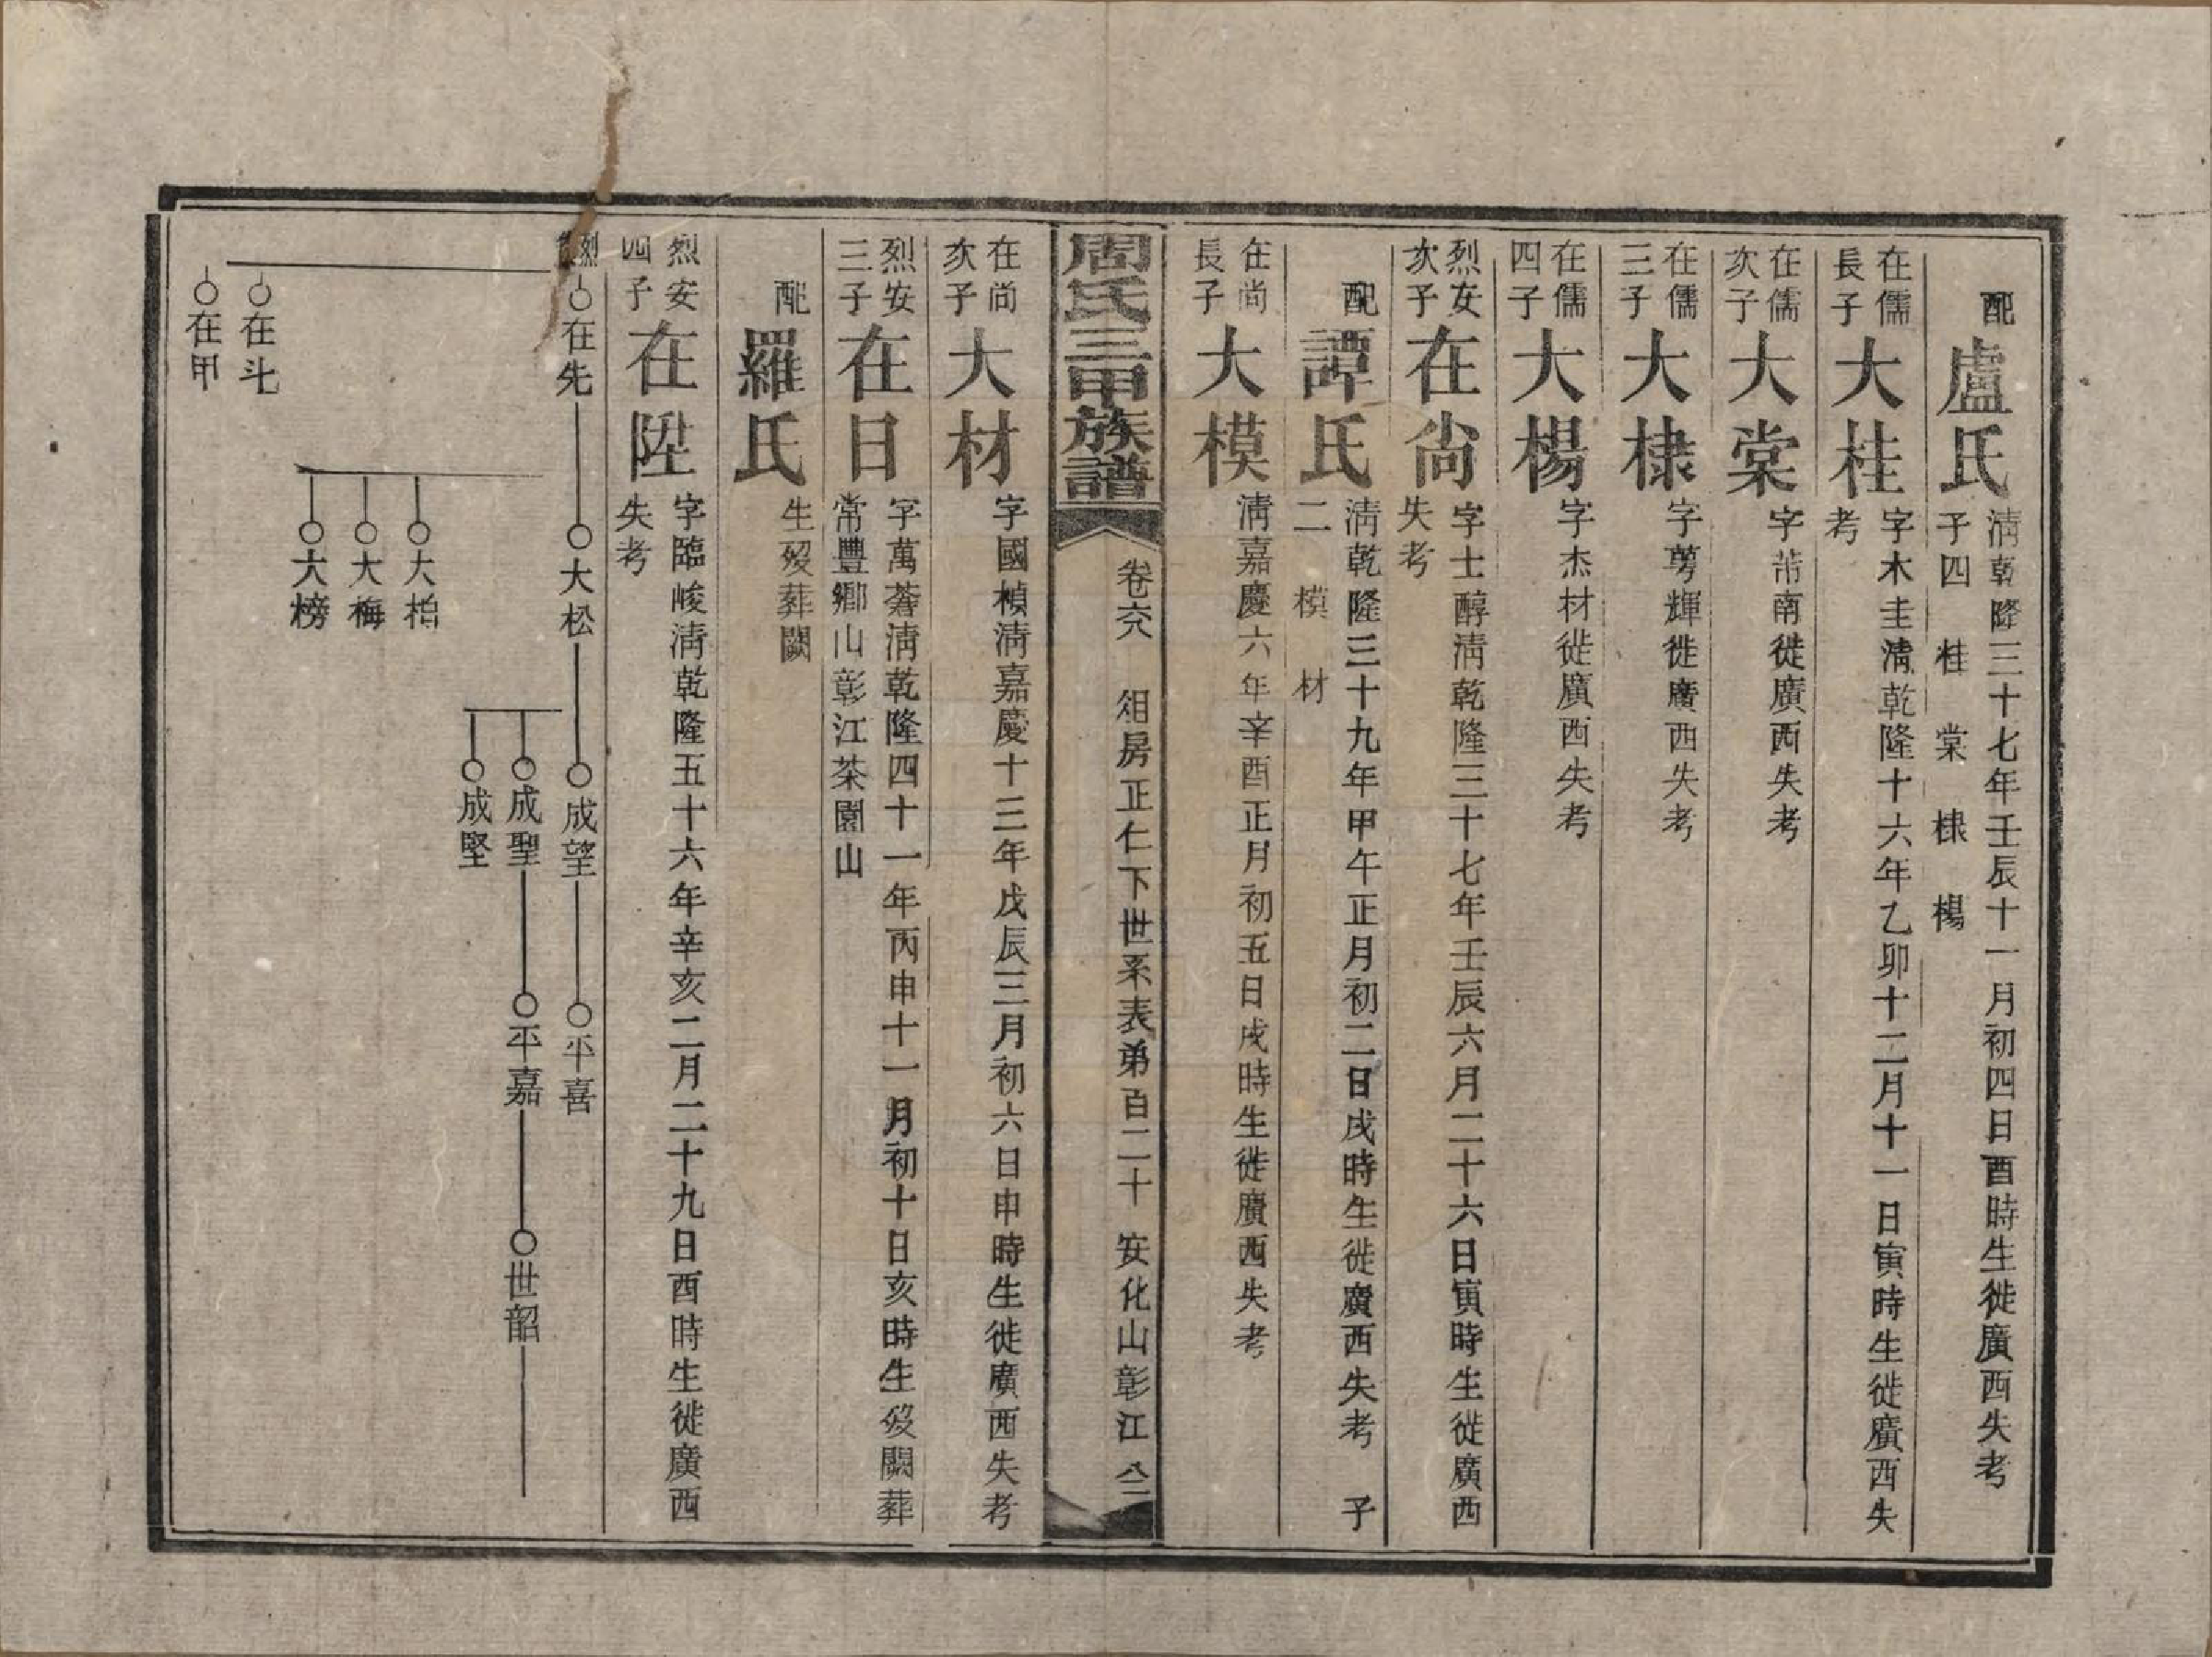 配盧氏 清乾隆三十七年壬辰十一月初四日酉時生徙廣西失考
子四 桂 棠 棣 楊
在儒長子 大桂 字木圭清乾隆十六年乙卯十二月十一日寅時生徙廣西失
考
在儒次子 大棠 字芾南徙廣西失考
在儒三子 大棣 字萼輝徙廣西失考
在儒四子 大楊 字杰材徙廣西失考
烈安次子 在尚 字士醇清乾隆三十七年壬辰六月二十六日寅時生徙廣西
失考
配譚氏 清乾隆三十九年甲午正月初二日戌時生徙廣西失考 子
二 模 材
在尚長子 大模 清嘉慶六年辛酉正月初五日戌時生徙廣西失考
周氏三甲族譜 卷六 俎房正仁下世系表弟百二十 安化山彰江 八二
在尚次子 大材 字國楨清嘉慶十三年戊辰三月初六日申時生徙廣西失考
烈安三子 在日 字萬蒼清乾隆四十一年丙申十一月初十日亥時生歿闕葬
常豐鄉山彰江茶園山
配羅氏 生歿葬闕
烈安四子 在陞 字臨峻清乾隆五十六年辛亥二月二十九日酉時生徙廣西
失考
烈 在先 大松 成望 平喜
成聖 平嘉 世韶
成堅
大柏
大梅
大榜
在斗
在甲